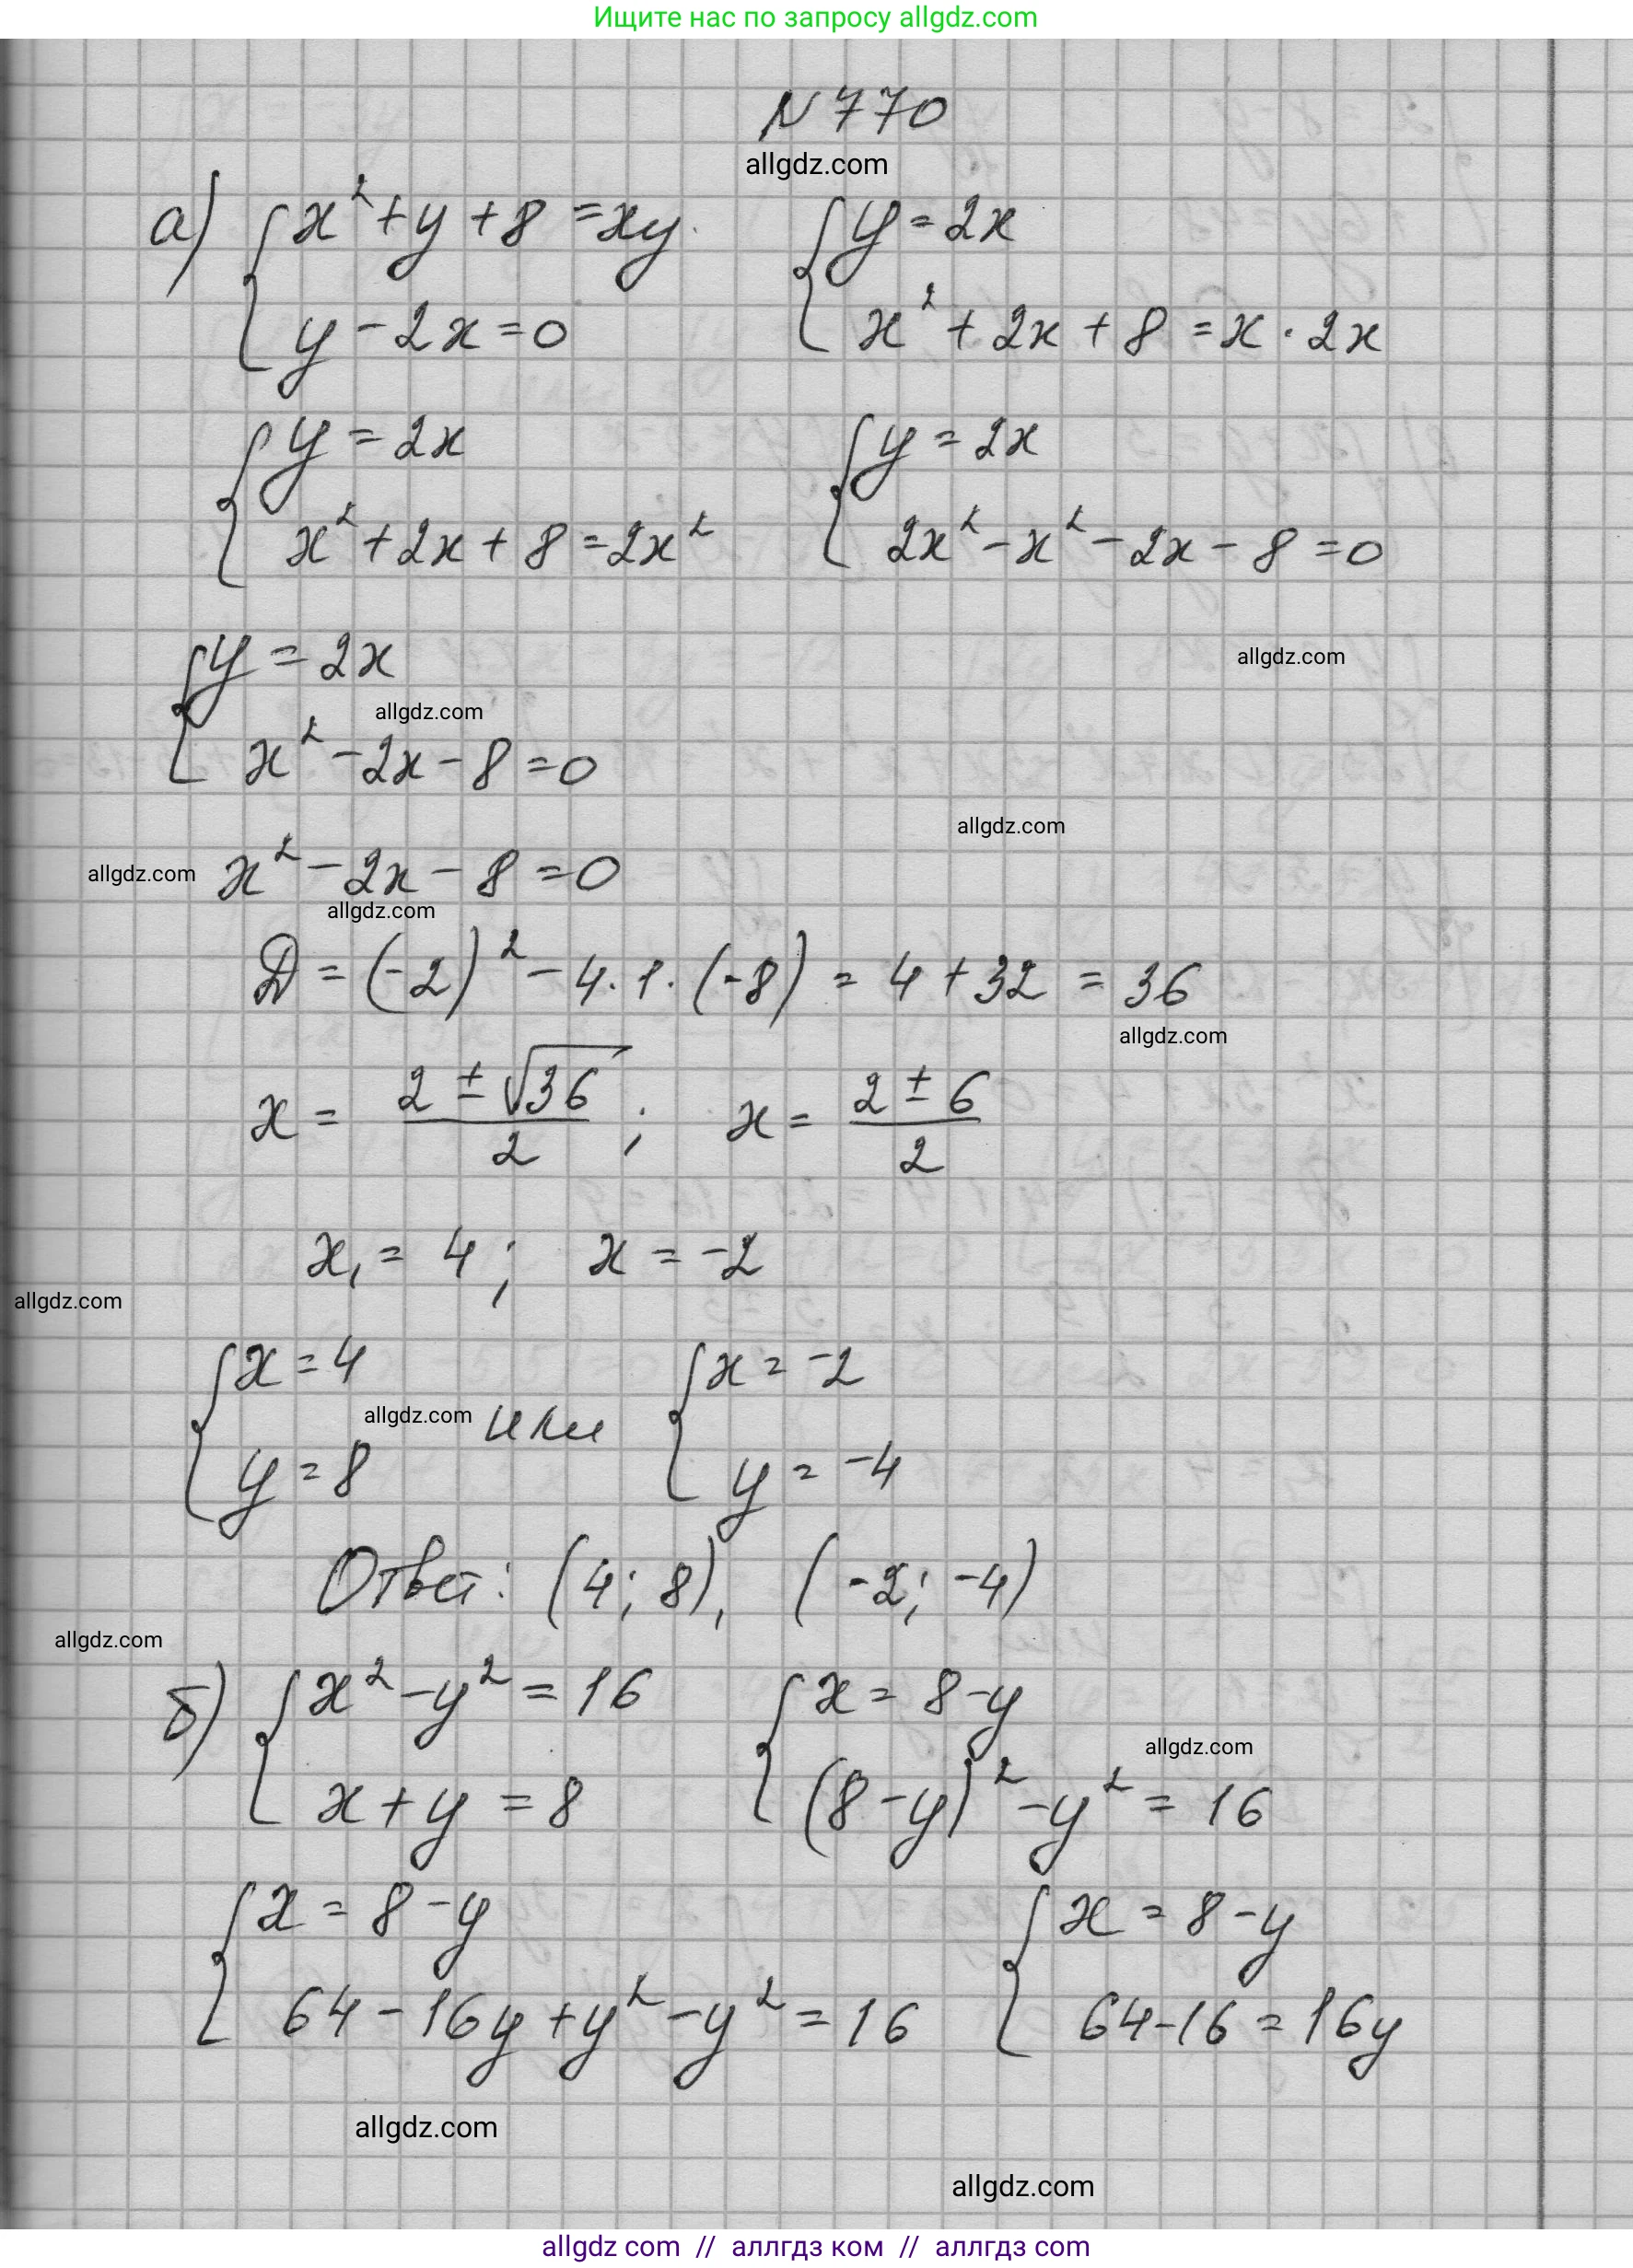 Ищите нас по запросу allgdz.com
N 770
allgdz.com
а) { x² + y + 8 = xy   { y = 2x
y - 2x = 0   x² + 2x + 8 = x · 2x
{ y = 2x   { y = 2x
x² + 2x + 8 = 2x²   2x² - x² - 2x - 8 = 0
{ y = 2x
allgdz.com
allgdz.com
x² - 2x - 8 = 0
allgdz.com
allgdz.com x² - 2x - 8 = 0
allgdz.com
D = (-2)² - 4 · 1 · (-8) = 4 + 32 = 36
allgdz.com
x = (2 ± √36)/2 ; x = (2 ± 6)/2
x₁ = 4 ; x = -2
allgdz.com
{ x = 4   { x = -2
allgdz.com или
y = 8   y = -4
Ответ: (4; 8), (-2; -4)
allgdz.com
б) { x² - y² = 16   { x = 8 - y
allgdz.com
x + y = 8   (8 - y)² - y² = 16
{ x = 8 - y   { x = 8 - y
64 - 16y + y² - y² = 16   64 - 16 = 16y
allgdz.com
allgdz.com
allgdz com // аллгдз ком // аллгдз com